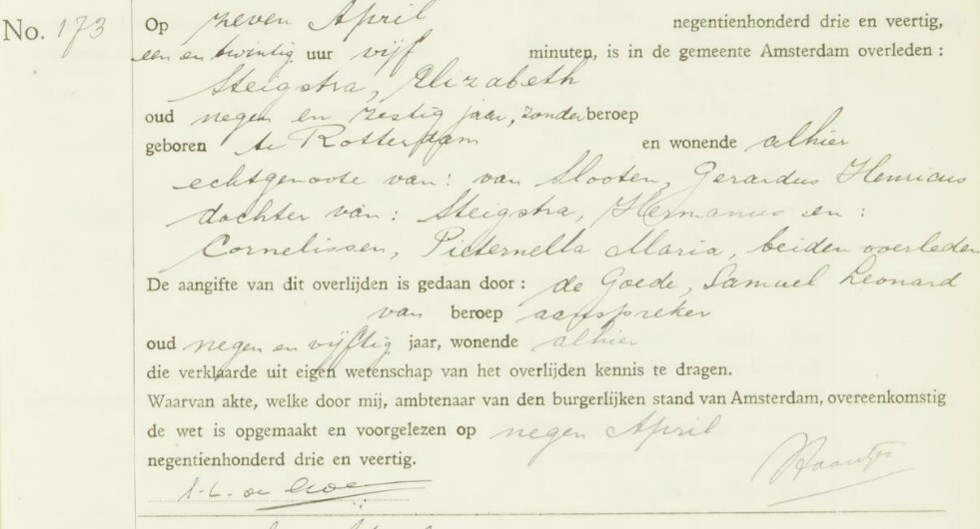 No. 173
Op zeven April negentienhonderd drie en veertig,
een en twintig uur vijf minuten, is in de gemeente Amsterdam overleden :
Steigstra, Elizabeth
oud negen en zestig jaar, zonder beroep
geboren te Rotterdam en wonende alhier
echtgenoote van: van Slooten, Gerardus Henricus
dochter van: Steigstra, Hermanus en :
Cornelissen, Pieternella Maria, beiden overleden
De aangifte van dit overlijden is gedaan door : de Goede, Samuel Leonard
van beroep aanspreker
oud negen en vijftig jaar, wonende alhier
die verklaarde uit eigen wetenschap van het overlijden kennis te dragen.
Waarvan akte, welke door mij, ambtenaar van den burgerlijken stand van Amsterdam, overeenkomstig
de wet is opgemaakt en voorgelezen op negen April
negentienhonderd drie en veertig.